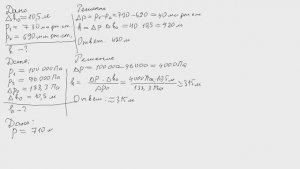 Дано
Δh₀ = 10,5 м
P₁ = 730 мм рт. ст.
P₂ = 690 мм рт. ст.
h - ?
Решение
ΔP = P₁ - P₂ =
= 40 мм рт. ст.
h =
= 40 · 10,5 = 420 м
Ответ: 420 м
Дано:
P₁ = 100 000 Па
P₂ = 96 000 Па
ΔP₀ = 133,3 Па
Δh₀ = 10,5 м
h - ?
Решение
ΔP = 100 000 - 96000 = 4000 Па
h = ΔP · Δh₀ / ΔP₀ = 4000 Па · 10,5 м / 133,3 Па ≈ 315 м
Ответ: ≈ 315 м
Дано:
P = 710 м